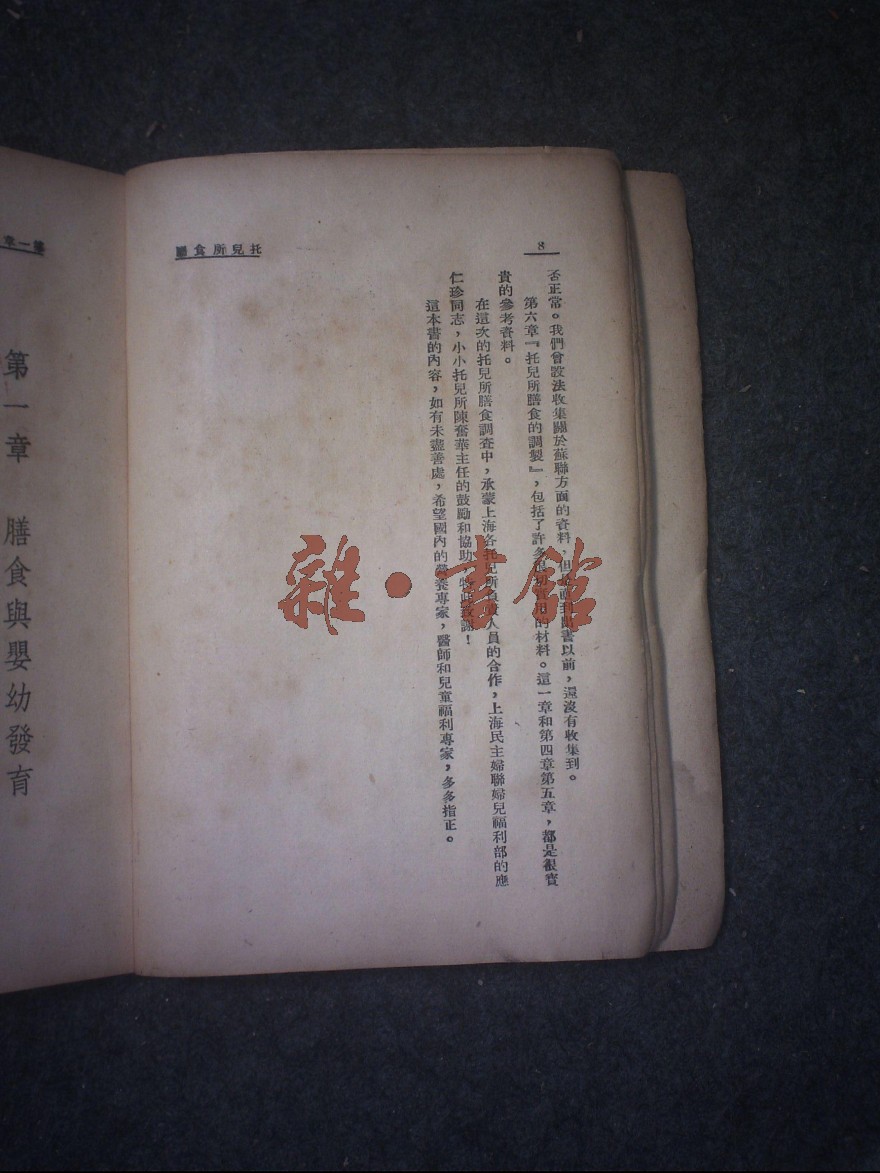 8
托兒所食膳
否正常。我們曾設法收集關於蘇聯方面的資料，但是到書以前，還沒有收集到。
第六章『托兒所膳食的調製』，包括了許多很切實用的材料。這一章和第四章第五章，都是很寶
貴的參考資料。
在這次的托兒所膳食調查中，承蒙上海各托兒所負人員的合作，上海民主婦聯婦兒福利部的應
仁珍同志，小小托兒所陳奮華主任的鼓勵和協助，特此致謝！
這本書的內容，如有未盡善處，希望國內的營養專家，醫師和兒童福利專家，多多指正。
雜·書館
第一章
第一章 膳食與嬰幼發育